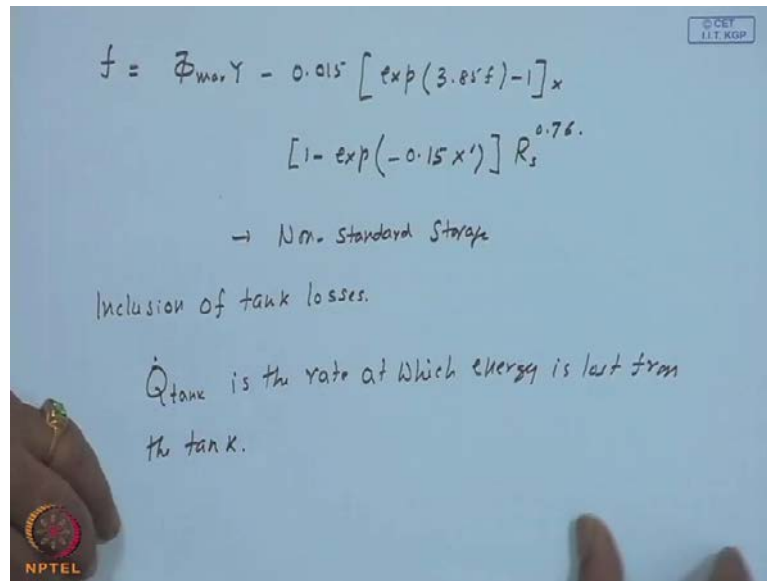 © CET
I.I.T. KGP
f = Φ̄max Y - 0.015 [exp(3.85f)-1] x
[1- exp(-0.15 x')] Rs^0.76.
→ Non-Standard Storage
Inclusion of tank losses.
Q̇tank is the rate at which energy is lost from
the tank.
NPTEL